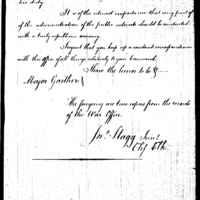 tive duty.
It is of the utmost importance that every part of
of the administration of the public interests should be conducted
with a truly republican economy.
I request that you keep up a constant correspondence
with this office of all things relatively to your command.
I have the honor to be &c
Major Gaither
The foregoing are true copies from the records
of the War Office.
Jno. Stagg Junr.
Chf. Clk.